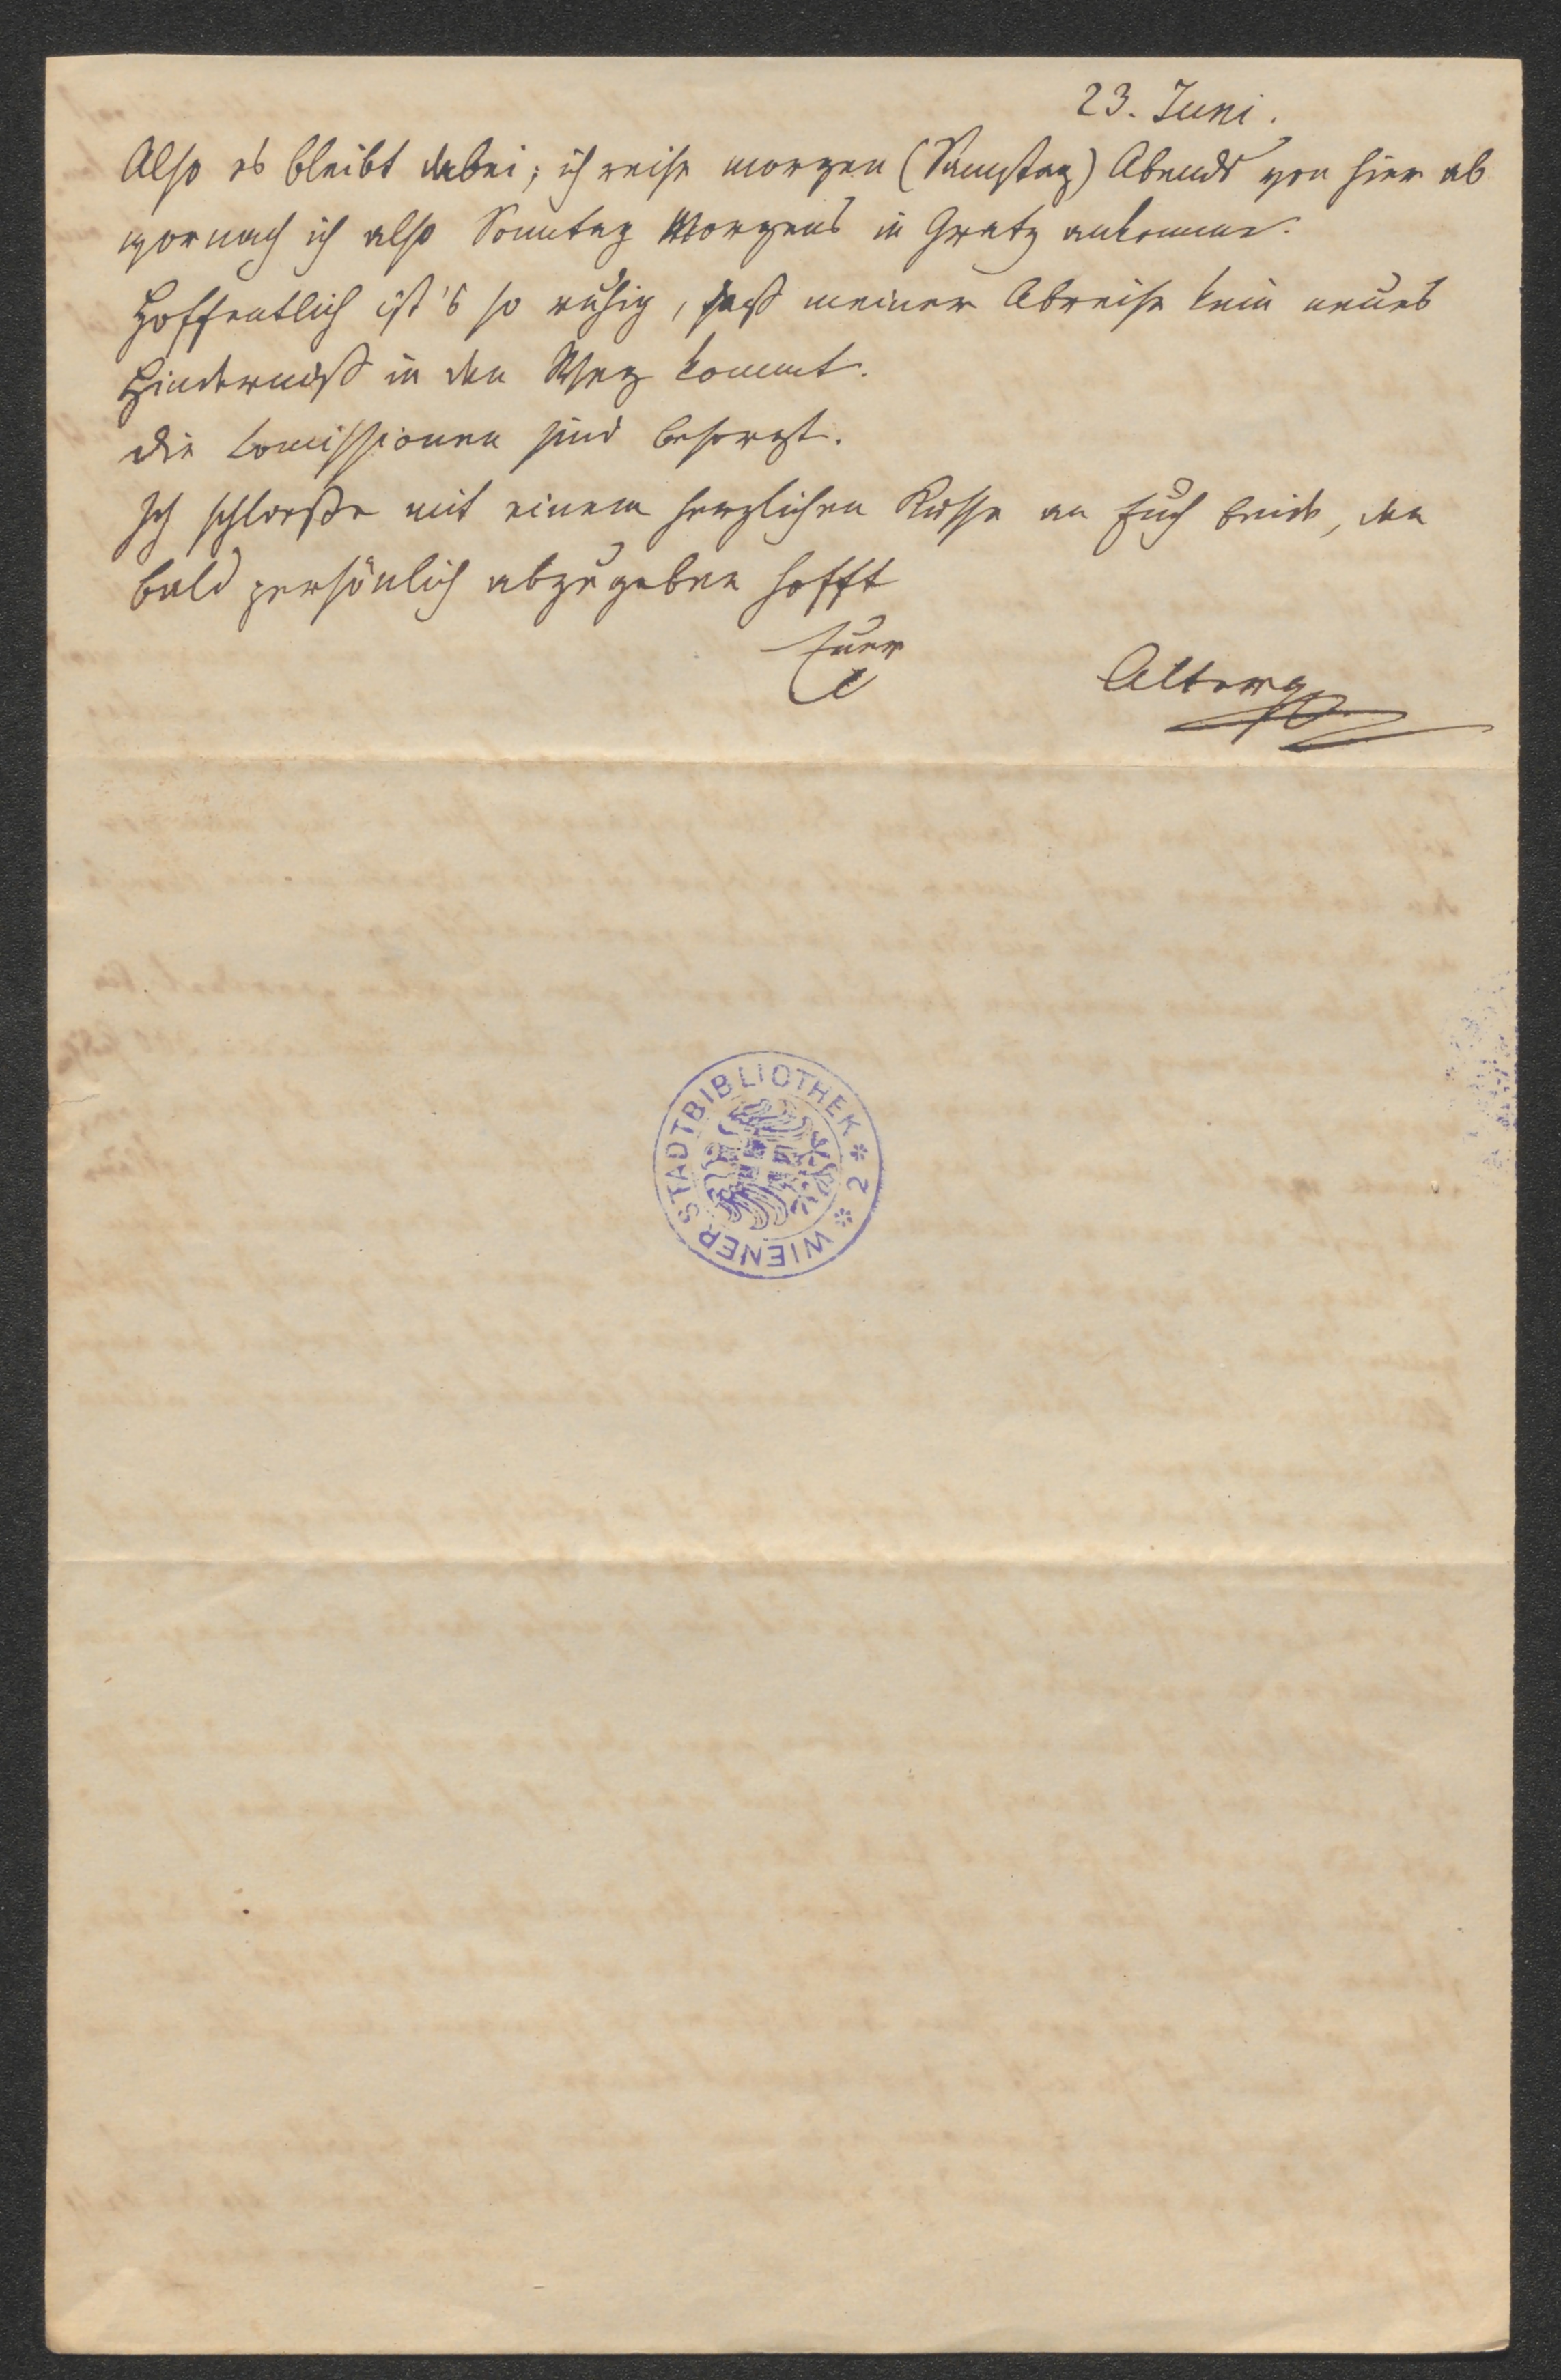 23. Juni.
Also es bleibt dabei; ich reise morgen (Samstag) Abends von hier ab
wornach ich also Sonntag Morgens in Gratz ankomme.
Hoffentlich ist's so ruhig, daß meiner Abreise kein neues
Hinderniß in den Weg kommt.
Die Comissionen sind besorgt.
Ich schließe mit einem herzlichen Kusse an Euch beide, den
bald persönlich abzugeben hofft
Euer
WIENER STADTBIBLIOTHEK * 2 *